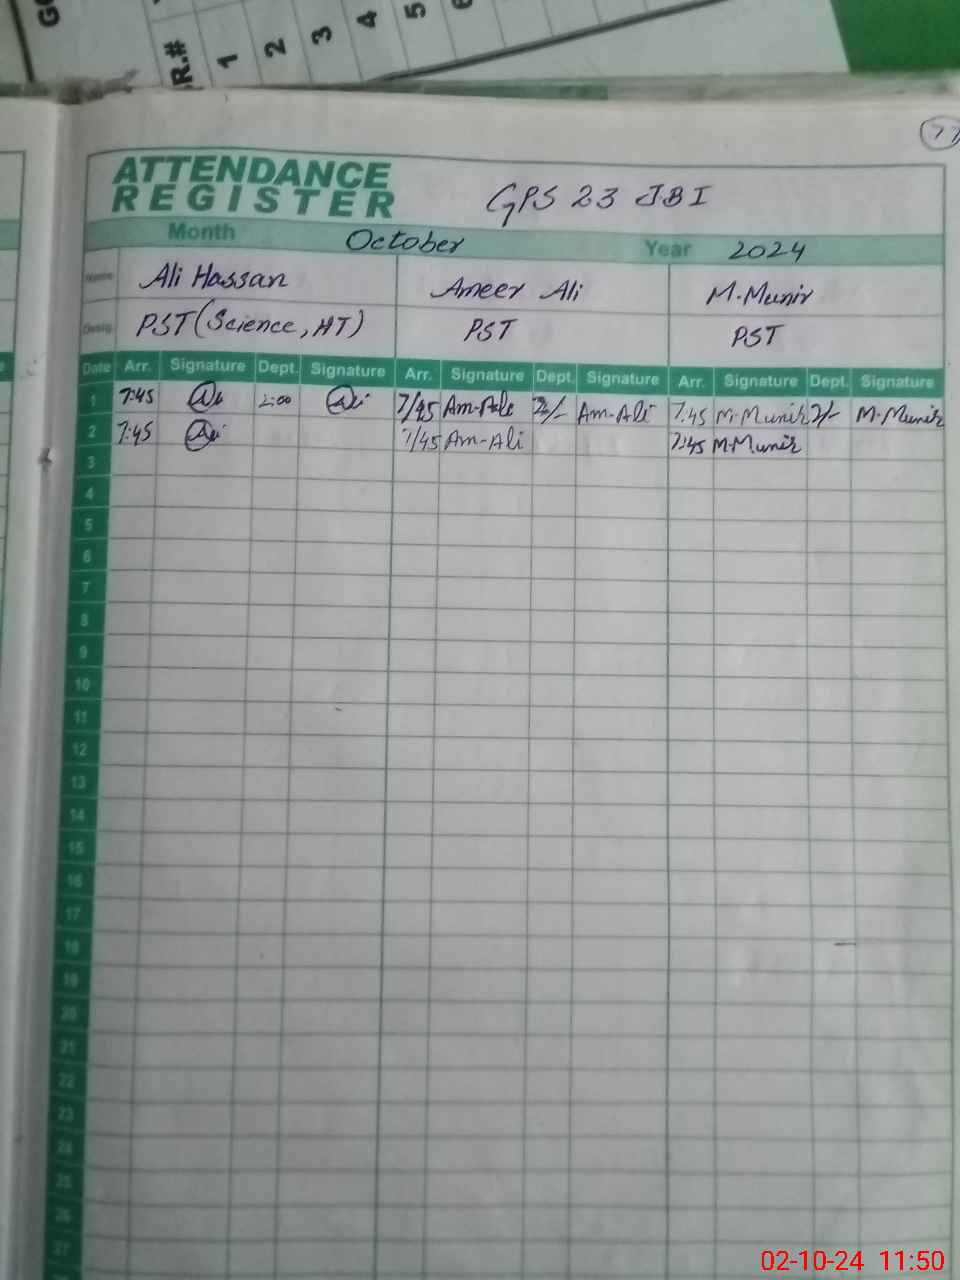 R.# 1 2 3 4 5 6
77
ATTENDANCE
REGISTER
GPS 23 JBI
Month October Year 2024
Name Ali Hassan Ameer Ali M.Munir
Desig. PST(Science, HT) PST PST
Date Arr. Signature Dept. Signature Arr. Signature Dept. Signature Arr. Signature Dept. Signature
1 7:45 Ali 2:00 Ali 7/45 Am-Ali 2/- Am-Ali 7:45 M.Munir 2/- M.Munir
2 7:45 Ali 7/45 Am-Ali 7:45 M.Munir
3
4
5
6
7
8
9
10
11
12
13
14
15
16
17
18
19
20
21
22
23
24
25
26
27
02-10-24 11:50